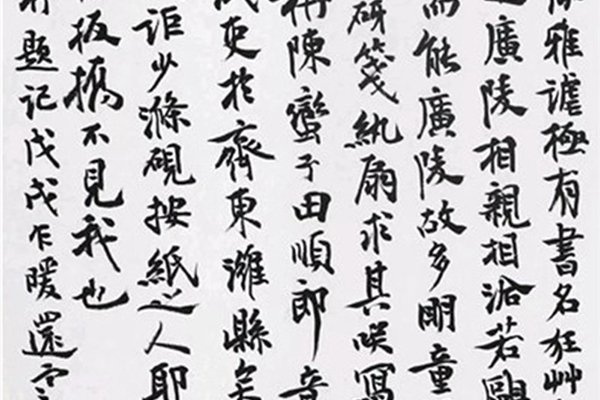 雅謔極有書名狂艸
廣陵相親相洽若鷗
而能廣陵故多明童
研箋紈扇求其咲寫
稱陳蠻子田順郎
吏於齊東濰縣矣
詎少滌硯按紙之人耶
板橋不見我也
題記戊戌乍暖還